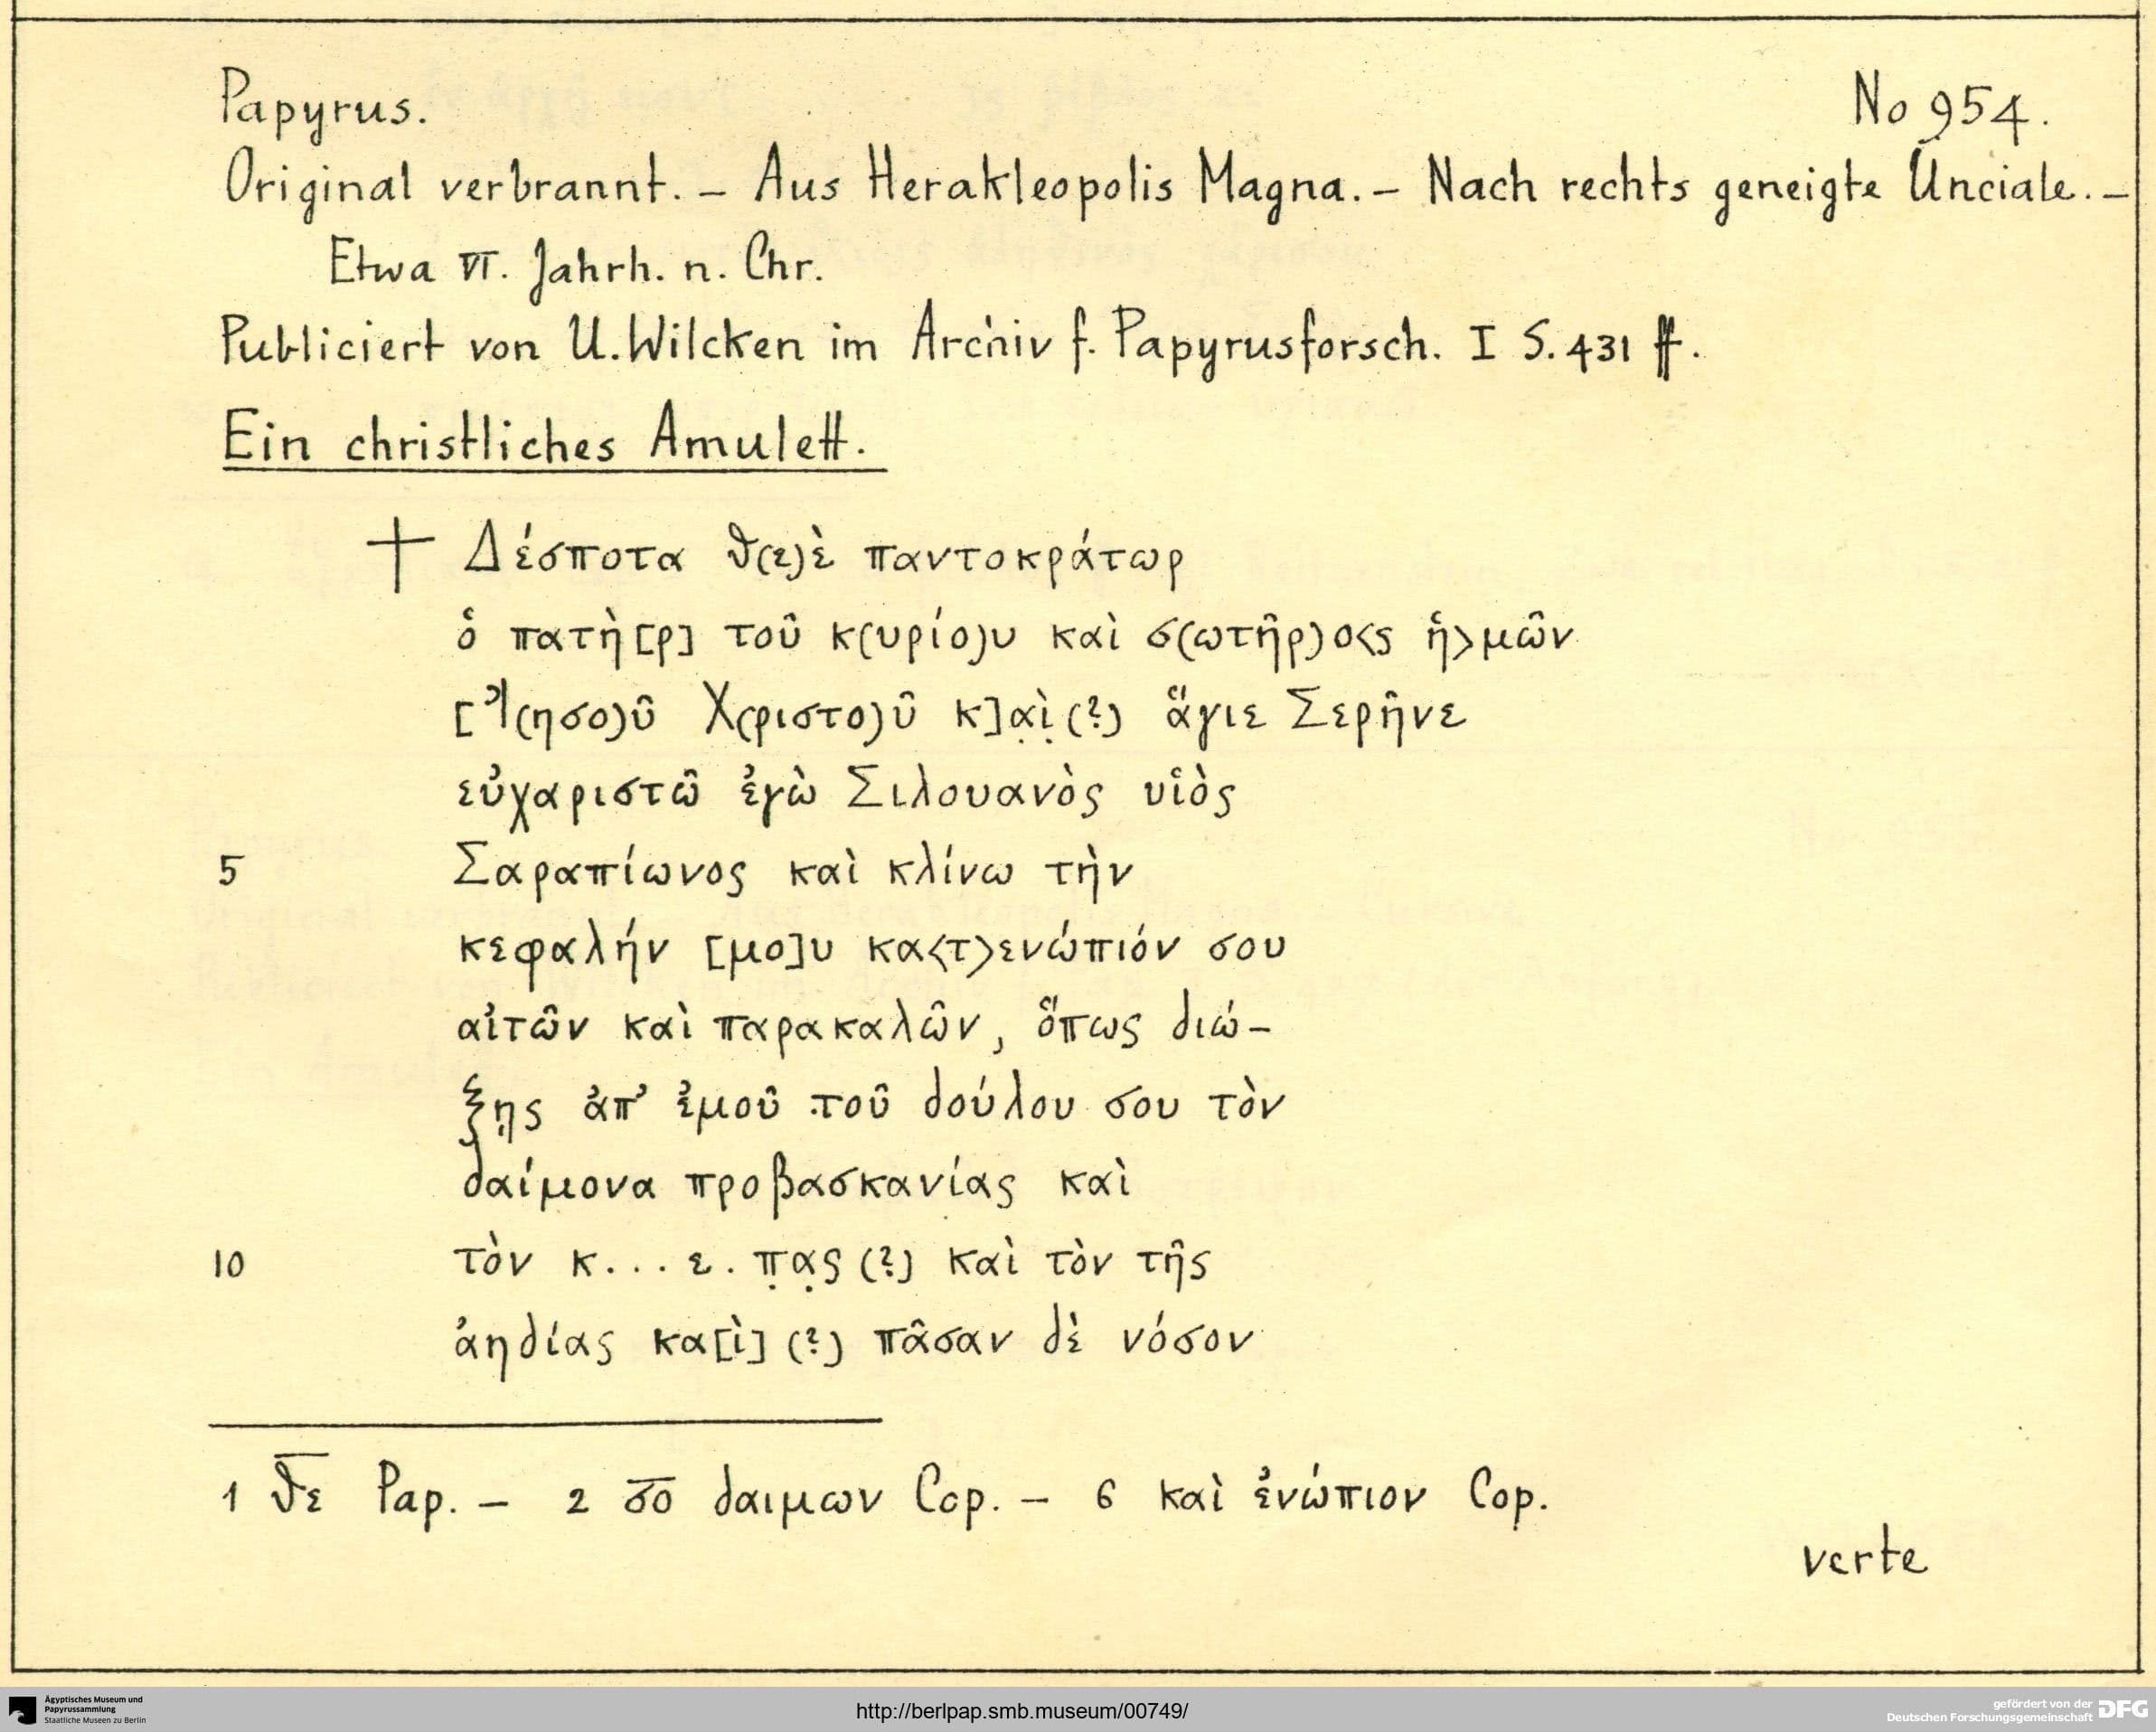 Papyrus. No 954.
Original verbrannt. – Aus Herakleopolis Magna. – Nach rechts geneigte Unciale. –
Etwa VI. Jahrh. n. Chr.
Publiciert von U. Wilcken im Archiv f. Papyrusforsch. I S. 431 ff.
Ein christliches Amulett.
☩ Δέσποτα θ(ε)ὲ παντοκράτωρ
ὁ πατὴ[ρ] τοῦ κ(υρίο)υ καὶ σ(ωτῆρ)ο<ς ἡ>μῶν
[Ἰ(ησο)ῦ Χ(ριστο)ῦ κ]α̣ὶ̣(?) ἅγιε Σερῆνε
εὐχαριστῶ ἐγὼ Σιλουανὸς υἱὸς
5 Σαραπίωνος καὶ κλίνω τὴν
κεφαλήν [μο]υ κα<τ>ενώπιόν σου
αἰτῶν καὶ παρακαλῶν, ὅπως διώ–
ξῃς ἀπ' ἐμοῦ τοῦ δούλου σου τὸν
δαίμονα προβασκανίας καὶ
10 τὸν κ...ε.π̣α̣ς(?) καὶ τὸν τῆς
ἀηδίας κα[ὶ](?) πᾶσαν δὲ νόσον
1 θ̅ε̅ Pap. – 2 σ̅ο̅ δαιμων Cop. – 6 καὶ ἐνώπιον Cop.
verte
Ägyptisches Museum und
Papyrussammlung
Staatliche Museen zu Berlin
http://berlpap.smb.museum/00749/
gefördert von der
Deutschen Forschungsgemeinschaft DFG